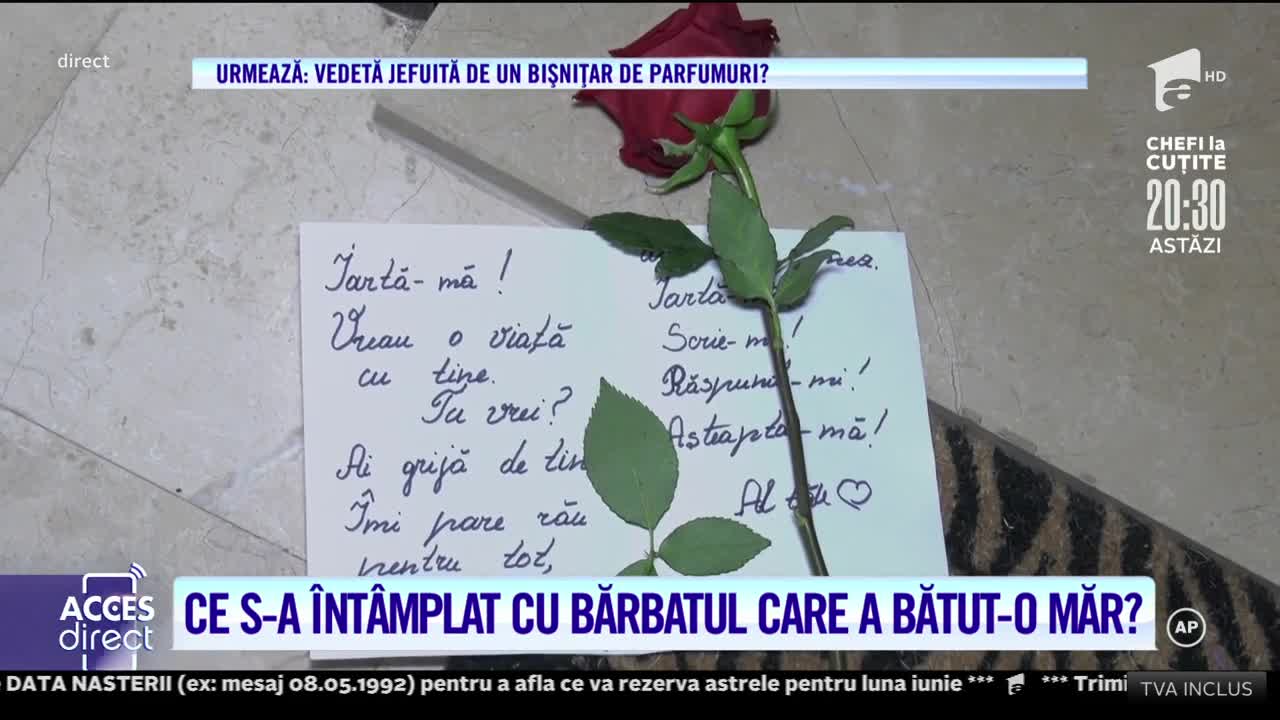 direct
URMEAZĂ: VEDETĂ JEFUITĂ DE UN BIŞNIŢAR DE PARFUMURI?
HD
CHEFI la
CUȚITE
20:30
ASTĂZI
Iartă-mă!
Vreau o viață
cu tine.
Tu vrei?
Ai grijă de
Îmi pare rău
pentru tot,
Iartă-
Scrie-mi!
Răspunde-mi!
Așteaptă-mă!
Al tău
ACCES
direct
CE S-A ÎNTÂMPLAT CU BĂRBATUL CARE A BĂTUT-O MĂR?
AP
DATA NASTERII (ex: mesaj 08.05.1992) pentru a afla ce va rezerva astrele pentru luna iunie *** *** Trimi
TVA INCLUS